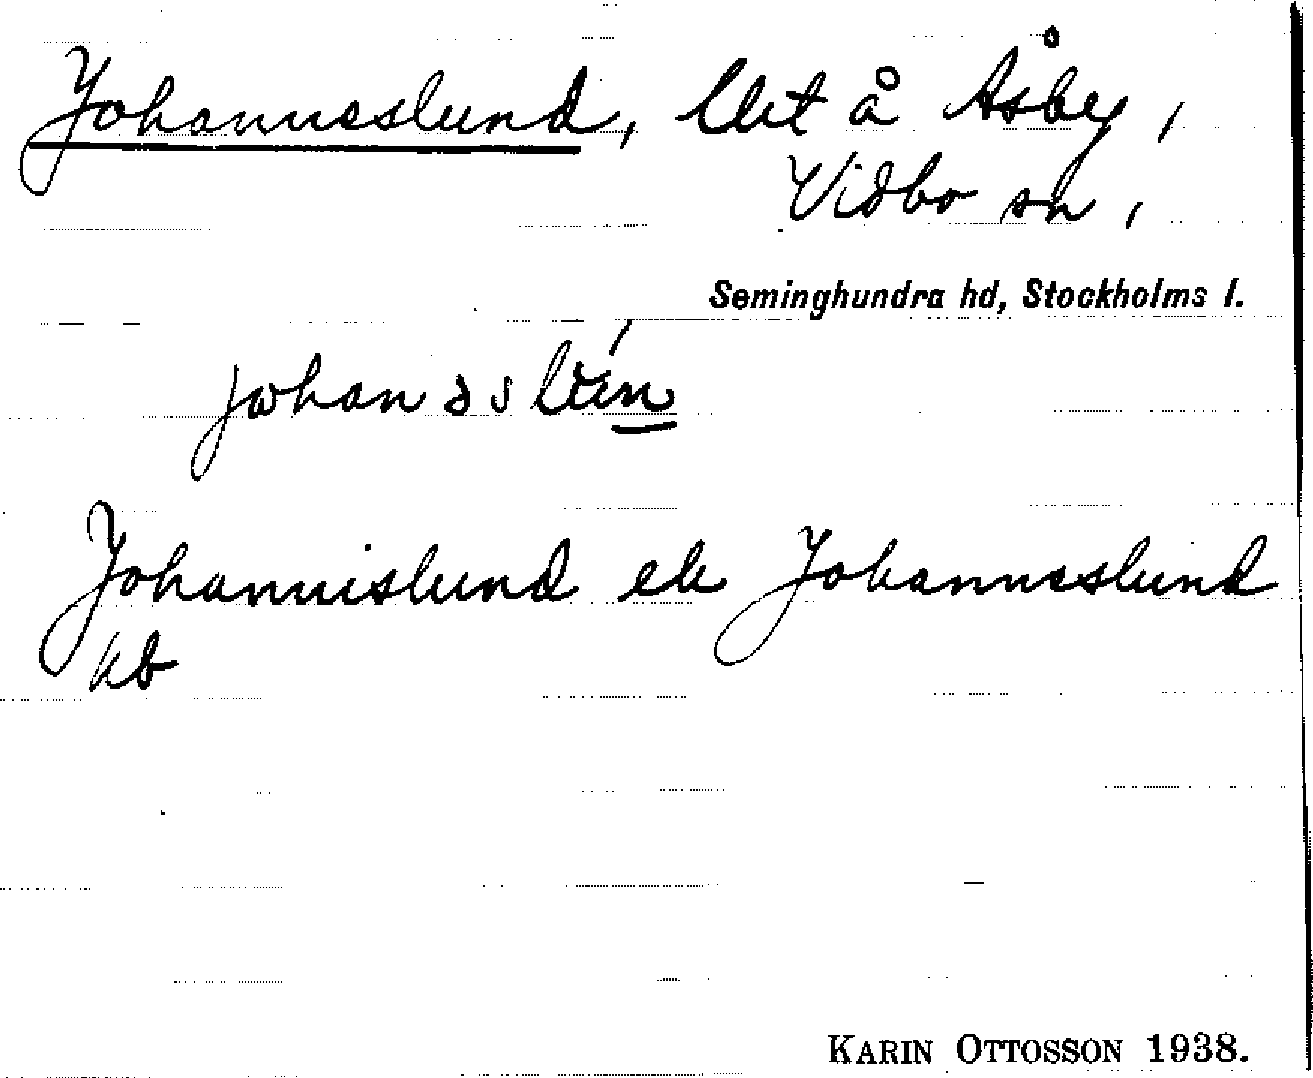 Johanneslund, lht å Åsby,
Vidbo sn,
Seminghundra hd, Stockholms l.
Johannislund el. Johanneslund
kb
KARIN OTTOSSON 1938.